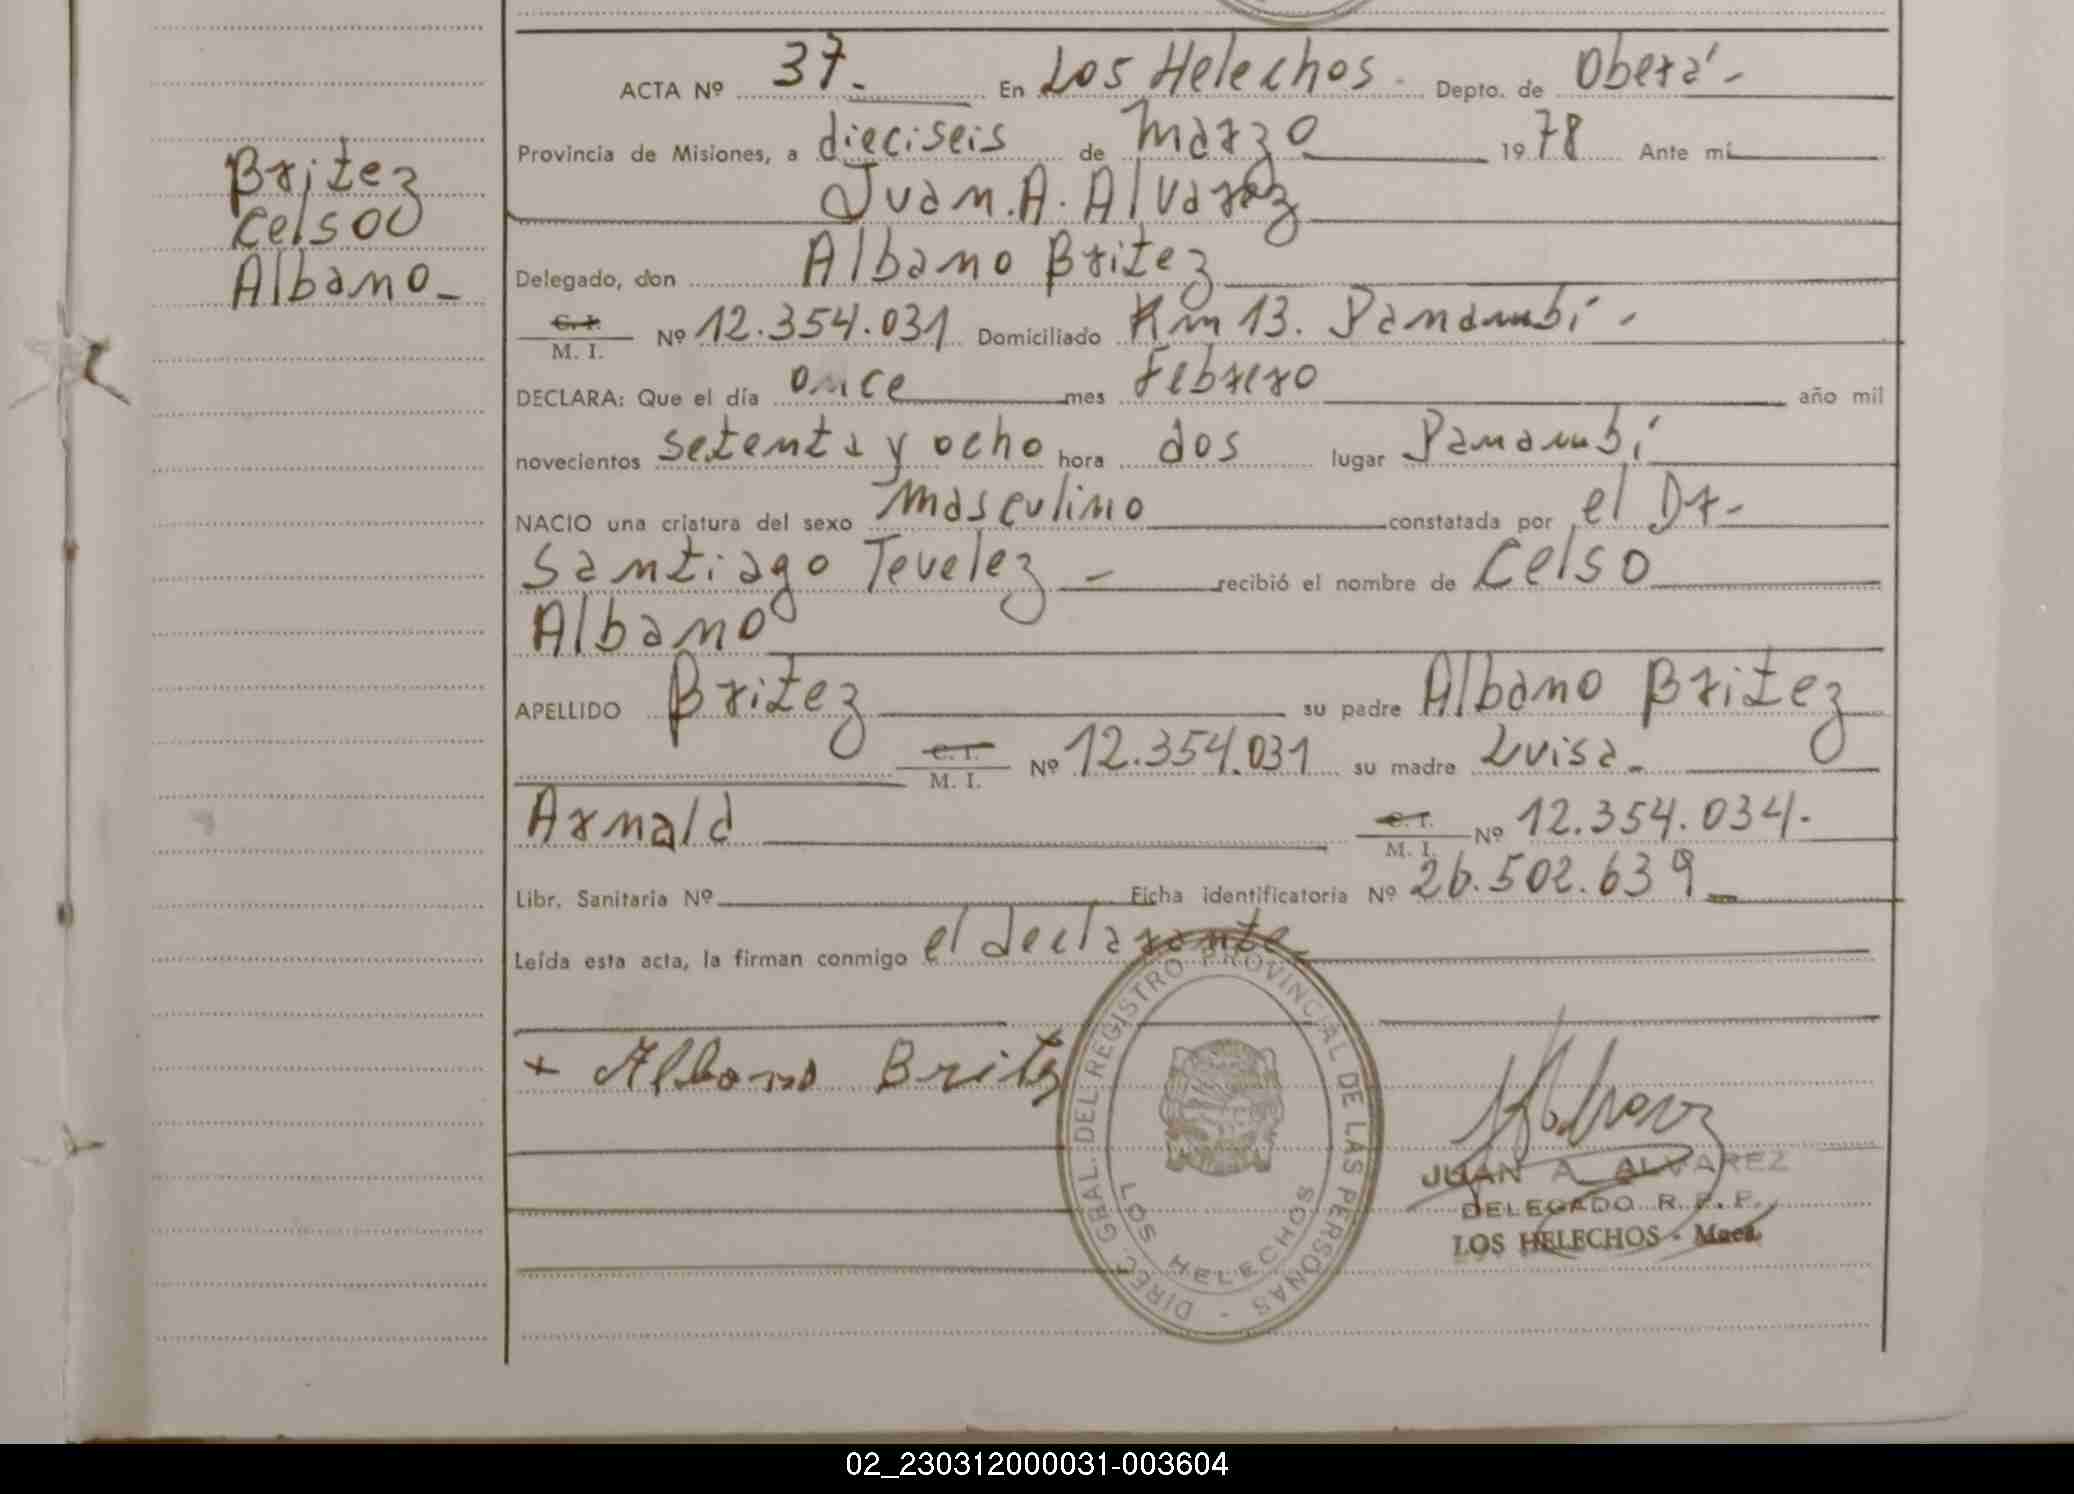 Britez
Celso
Albano_
ACTA Nº 37_ En Los Helechos Depto. de Oberá -
Provincia de Misiones, a dieciseis de Marzo 19 78 Ante mí
Juan. A. Alvarez
Delegado, don Albano Britez
C. I.
M. I. Nº 12.354.031 Domiciliado Km 13. Panambí -
DECLARA: Que el día once mes Febrero año mil
novecientos setenta y ocho hora dos lugar Panambí
NACIO una criatura del sexo Masculino constatada por el Dr-
Santiago Tevelez - recibió el nombre de Celso
Albano
APELLIDO Britez su padre Albano Britez
C. I.
M. I. Nº 12.354.031 su madre Luisa_
Arnald C. I.
M. I. Nº 12.354.034.
Libr. Sanitaria Nº Ficha identificatoria Nº 26.502.639_
Leída esta acta, la firman conmigo el declarante
+ Albano Britez
DIREC. GRAL. DEL REGISTRO PROVINCIAL DE LAS PERSONAS -
LOS HELECHOS
JUAN A. ALVAREZ
DELEGADO R. P. P.
LOS HELECHOS - Mnes.
02_230312000031-003604